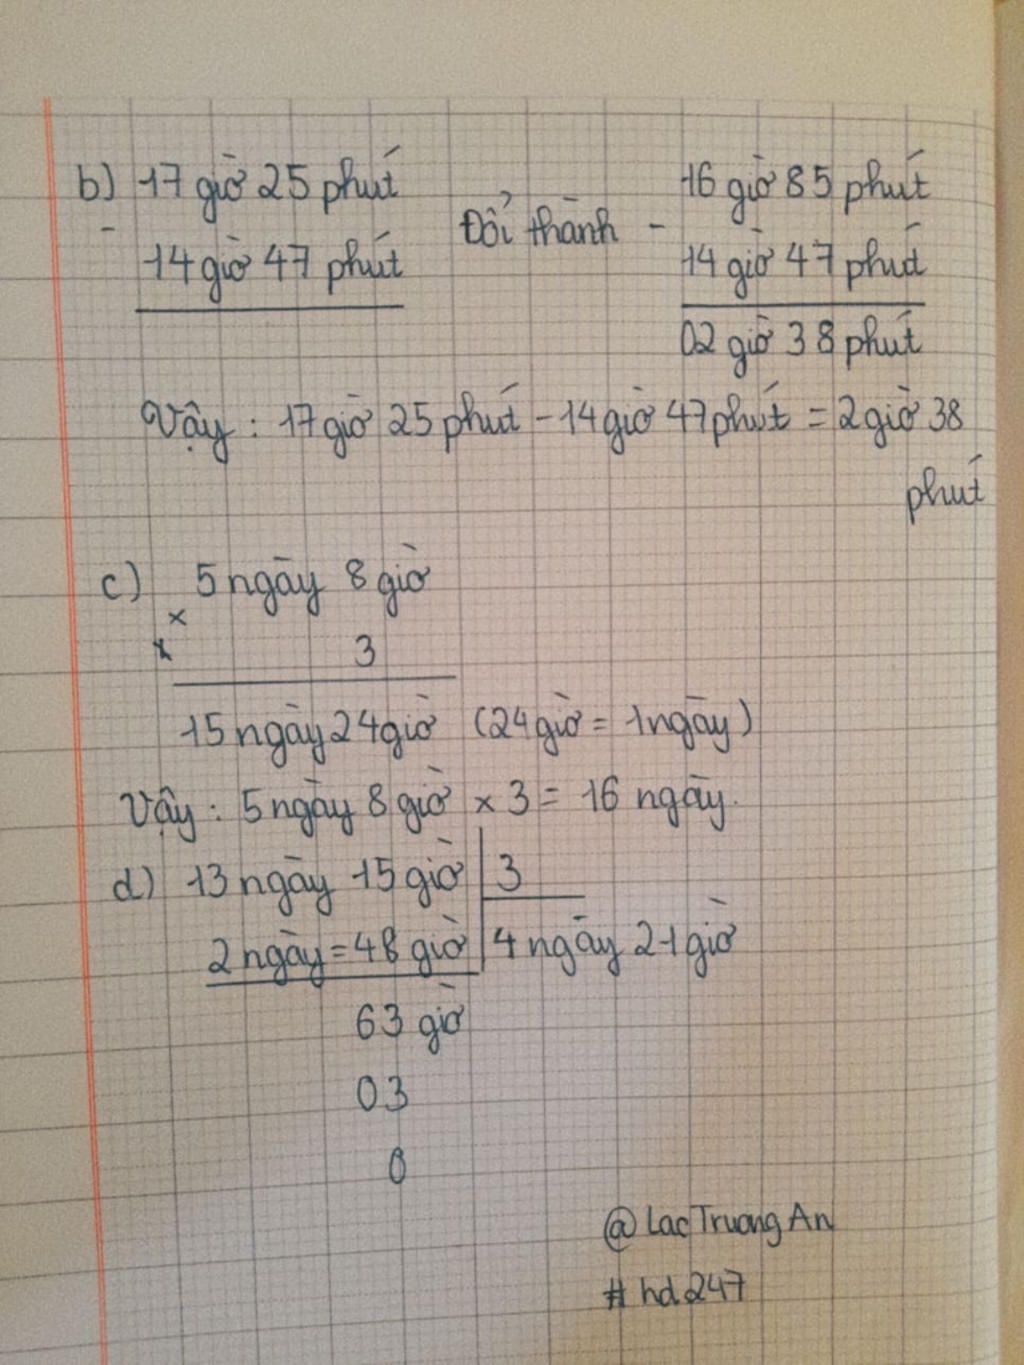 b) 17 giờ 25 phút Đổi thành - 16 giờ 85 phút
- 14 giờ 47 phút 14 giờ 47 phút
02 giờ 38 phút
Vậy : 17 giờ 25 phút - 14 giờ 47 phút = 2 giờ 38
phút
c) 5 ngày 8 giờ
x
x 3
15 ngày 24 giờ (24 giờ = 1 ngày)
Vậy : 5 ngày 8 giờ x 3 = 16 ngày.
d) 13 ngày 15 giờ 3
2 ngày = 48 giờ 4 ngày 21 giờ
63 giờ
03
0
@LacTruongAn
#hd247